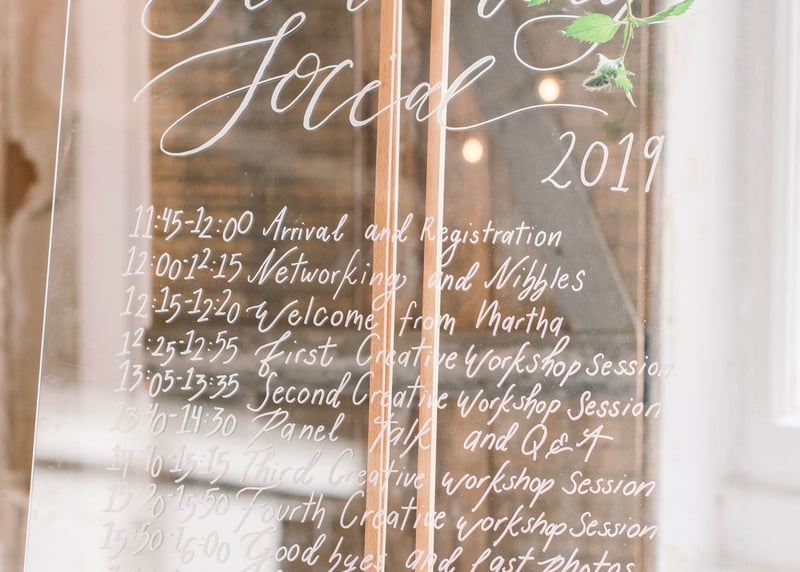 Social
2019
11:45-12:00 Arrival and Registration
12:0012:15 Networking and Nibbles
12:15-12:20 Welcome from Martha
12:25-12:55 First Creative Workshop Session
13:05-13:35 Second Creative Workshop Session
13:40-14:30 Panel Talk and Q & A
Third Creative Workshop Session
15:20-15:50 Fourth Creative Workshop Session
15:50-16:00 Good bye and last photos